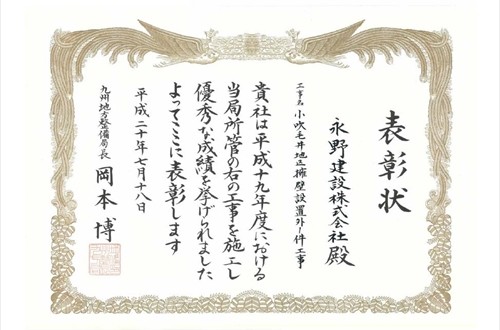 表彰状
永野建設株式会社殿
工事名 小吹毛井地区擁壁設置外一件工事
貴社は平成十九年度における
当局所管の右の工事を施工し
優秀な成績を挙げられました
よってここに表彰します
平成二十年七月十八日
九州地方整備局長 岡本博